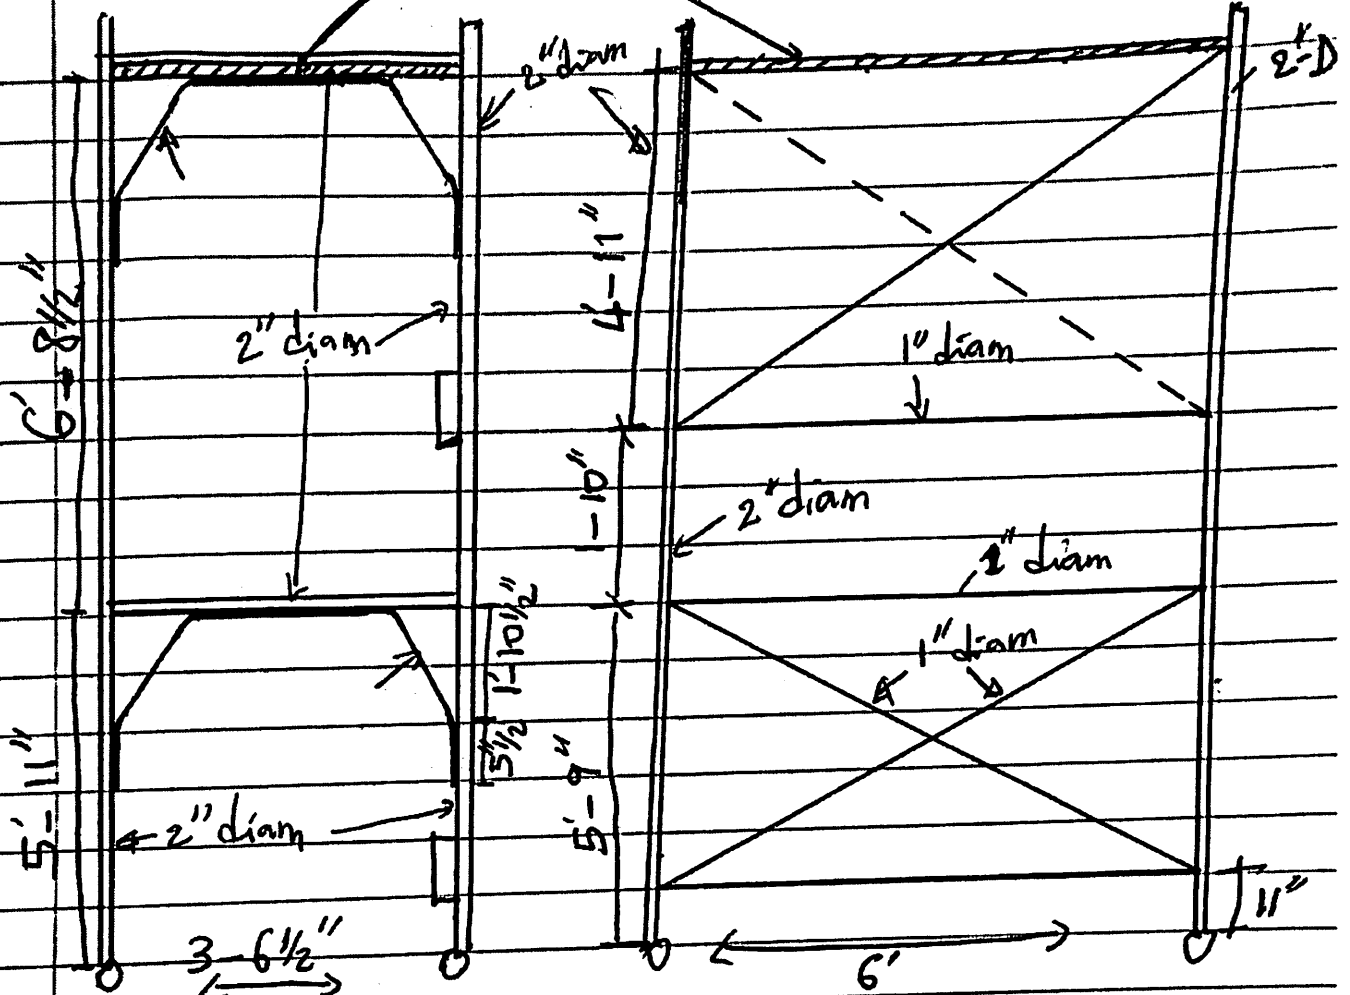 2" diam
2"-D
6'-8 1/2"
4-11"
2" diam
1" diam
1-10"
2" diam
1" diam
1'-10 1/2"
1" diam
5" 1/2
5'-11"
5'-9"
2" diam
11"
3-6 1/2"
6'